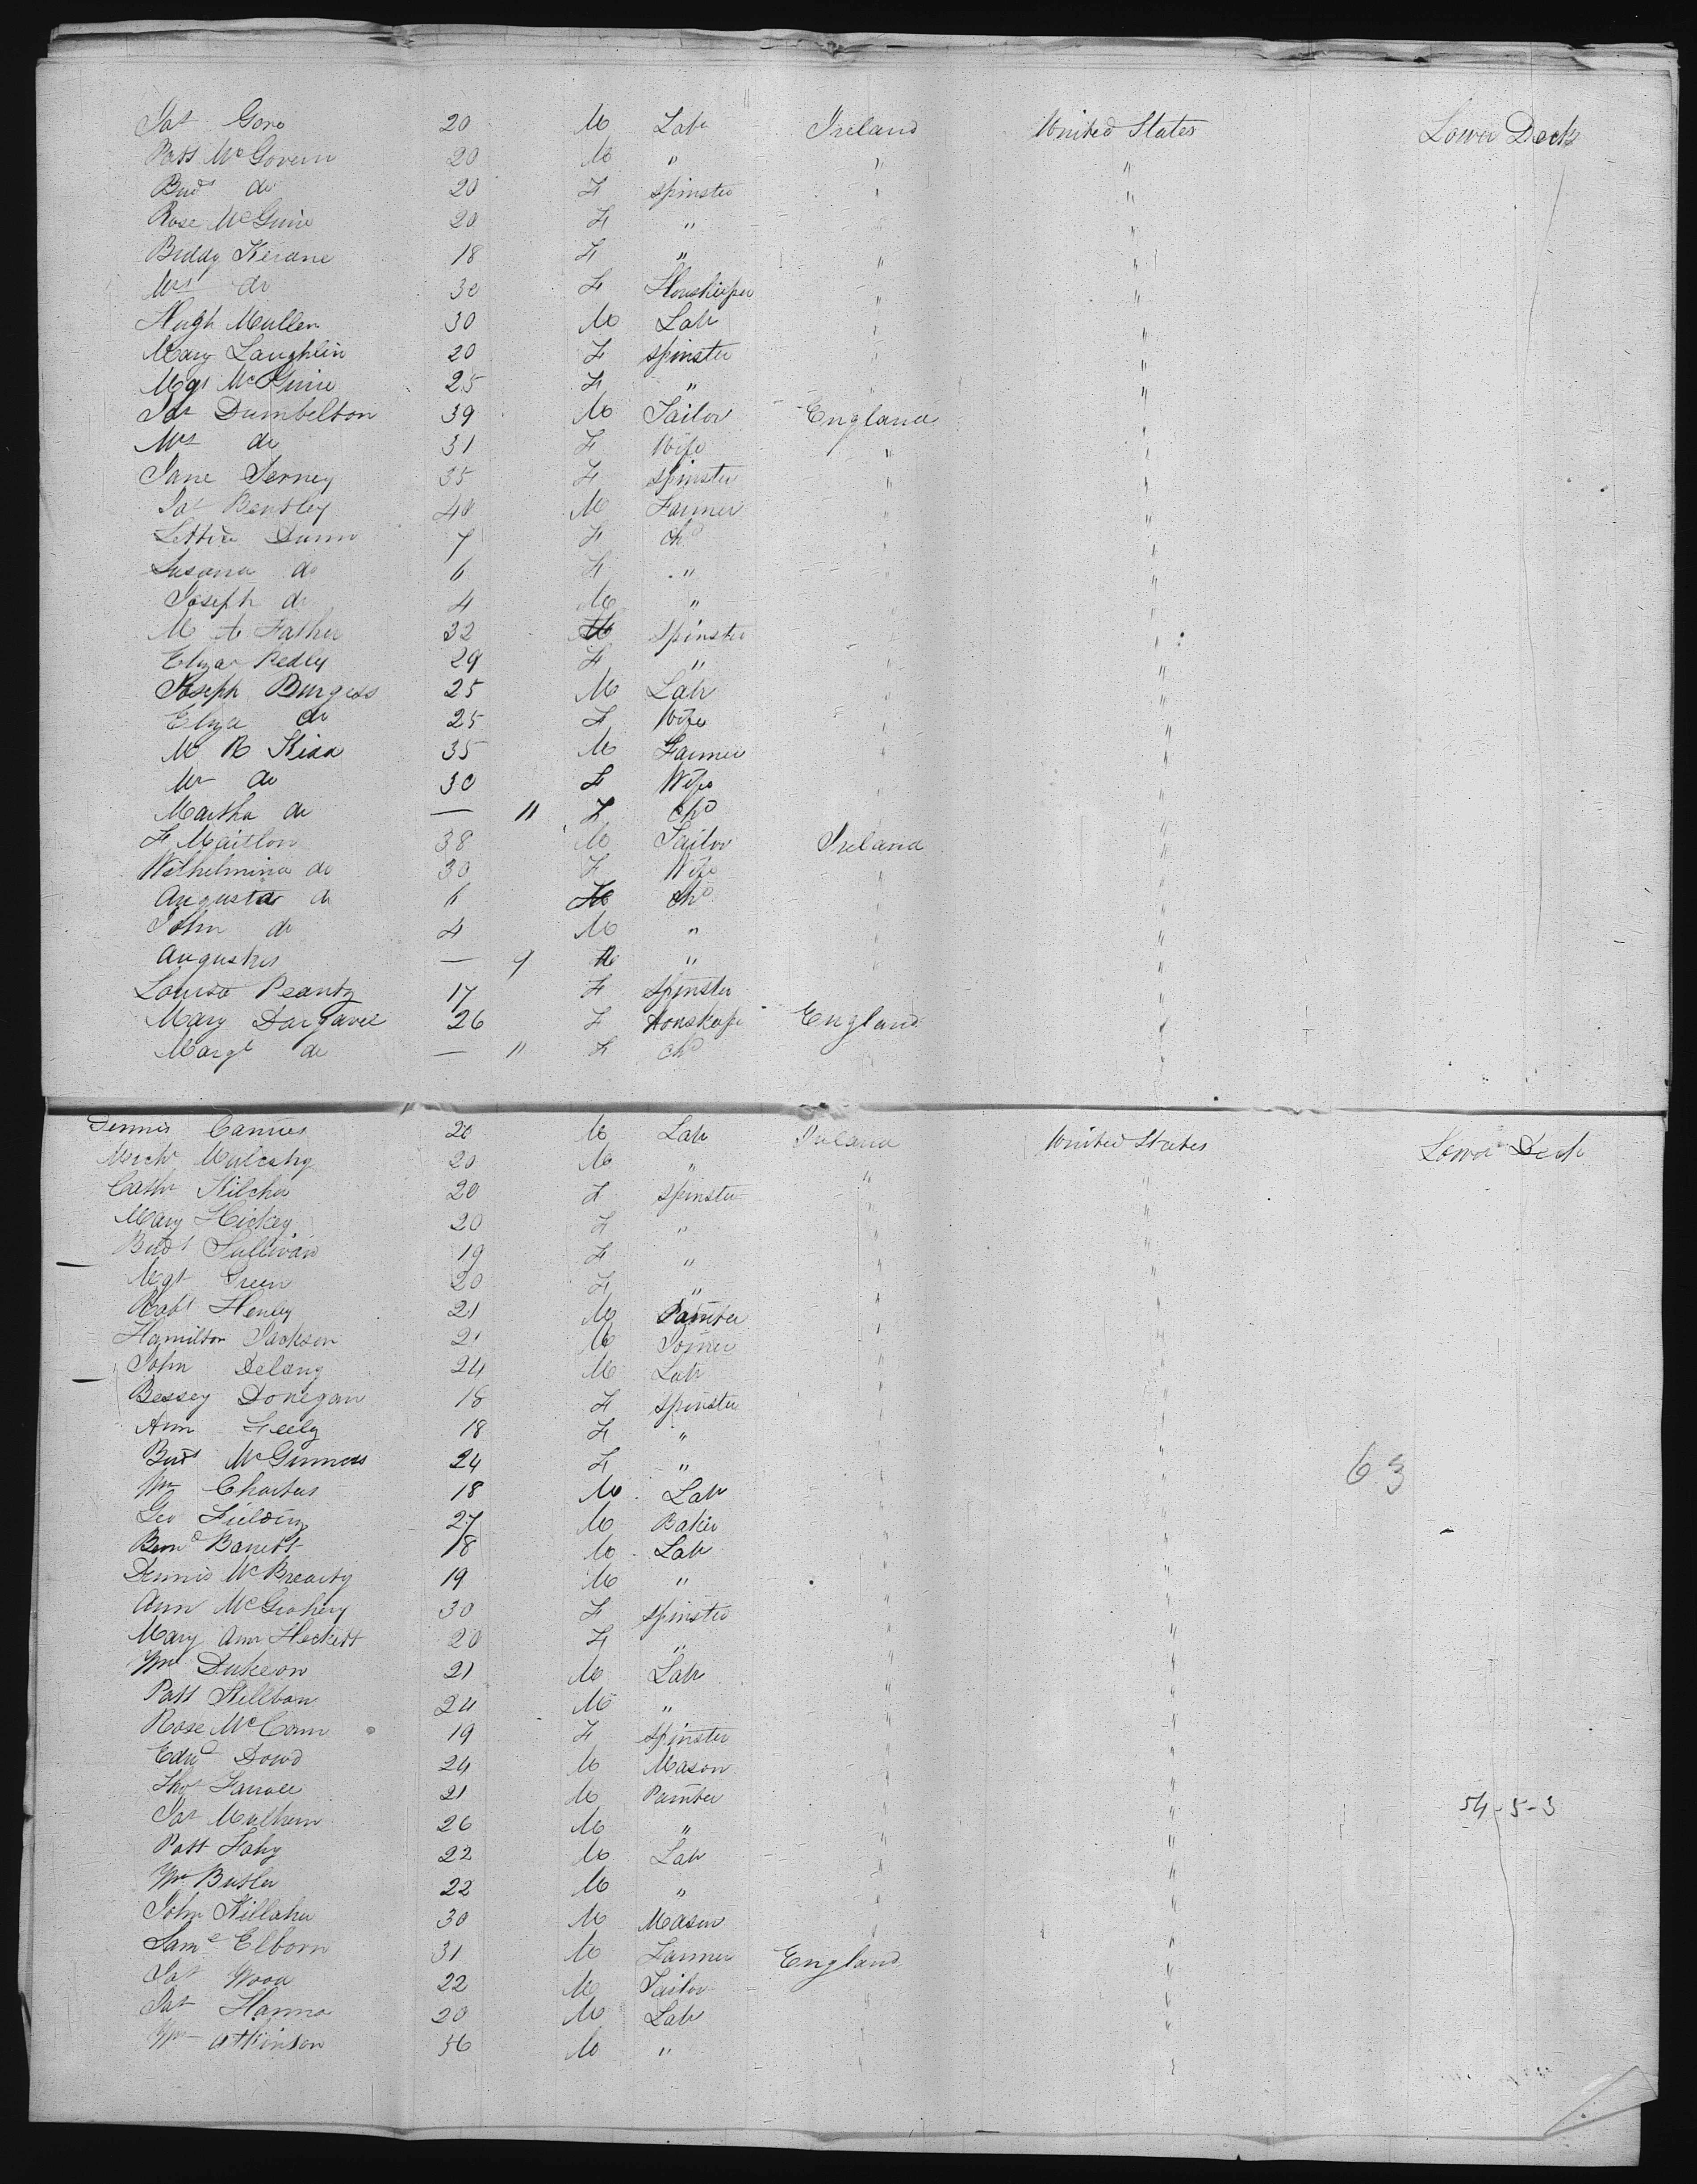 Jas Gore 20 M Labr Ireland United States Lower Deck
Patt McGovern 20 M " " "
Bridt do 20 F Spinster " "
Rose McGuire 20 F " "
Biddy Kerane 18 F " " "
Mrs do 30 F Housekeeper " "
Hugh Mullen 30 M Labr " "
Mary Laughlin 20 F Spinster " "
Mgt McGuire 25 F " " "
Jas Dumbelton 39 M Tailor England "
Mrs do 31 F Wife " "
Jane Terney 35 F Spinster " "
Jas Bentley 40 M Farmer " "
Lettia Dunn 7 F Chd " "
Susana do 6 F " " "
Joseph do 4 M " " "
M A Father 32 Spinster " "
Eliza Redly 29 F " " "
Joseph Burgess 25 M Labr " "
Eliza do 25 F Wife " "
M R Kidd 35 M Farmer " "
Mrs do 30 F Wife " "
Martha do — 11 F Chd "
F Maitlon 38 M Tailor Ireland "
Wilhelmina do 30 F Wife " "
Augusta do 6 Chd " "
John do 4 M " " "
Augustus — 9 M " " "
Louisa Peantz 17 F Spinster "
Mary Dargavel 26 F Houskepr England "
Margt do — 11 F Chd " "
Dennis 20 M Labr Ireland United States Lower Deck
Michl Mulcahy 20 M " " "
Cathr Kilcher 20 F Spinster " "
Mary Hickey 20 F " " "
Bridt Sullivan 19 F " " "
Mgt Green 20 F " " "
Robt Henley 21 M Painter " "
Hamilton Jackson 21 M Joiner " "
John Delany 24 M Labr " "
Bessey Donegan 18 F Spinster " "
Ann Feely 18 F " "
Bridt McGinness 24 F " " " 63
Wm Charters 18 M Labr " "
Geo Fielding 27 M Baker " "
Bernd Barrett 18 M Labr " "
Dennis McBrearty 19 M " " "
Ann McGrohery 30 F Spinster " "
Mary Ann Heckett 20 F " " "
Wm Dickson 21 M Labr " "
Patt Killban 24 M " " "
Rose McCann 19 F Spinster " "
Edwd Dowd 24 M Mason " "
Thos Farrell 21 M Painter " " 54-5-3
Jas Mulhern 26 M " " "
Patt Fahy 22 M Labr " "
Wm Butler 22 M " " "
John Killaher 30 M Mason " "
Saml Elborn 31 M Farmer England "
Jas Wood 22 M Tailor "
Jas Hanna 20 M Labr " "
Wm Atkinson 56 M " " "